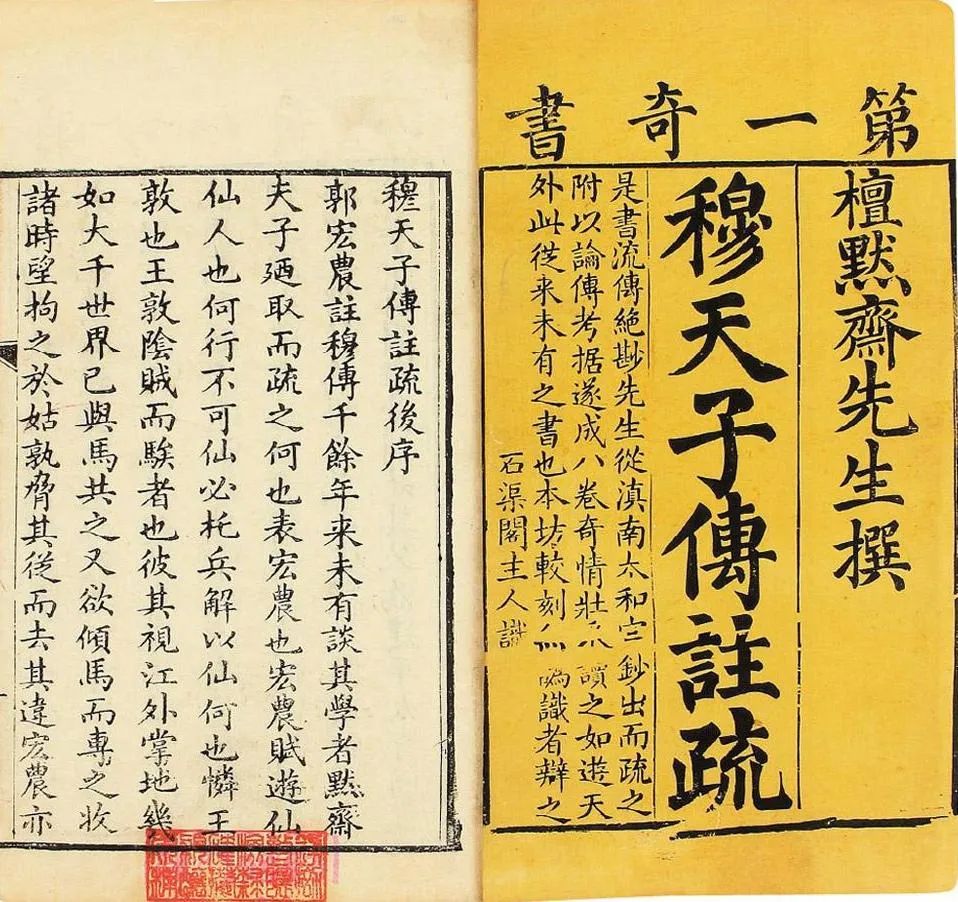 第一奇書
檀默齋先生撰
穆天子傳註疏
是書流傳絕尠先生從滇南太和鈔出而疏之
附以論傳考据遂成八卷奇情壯讀之如遊天
外此從来未有之書也本坊較刻識者辯之
石渠閣主人識
穆天子傳註疏後序
郭宏農註穆傳千餘年来未有談其學者默齋
夫子廼取而疏之何也表宏農也宏農賦遊仙
仙人也何行不可仙必托兵解以仙何也憐王
敦也王敦陰賊而騃者也彼其視江外掌地幾
如大千世界已與馬共之又欲傾馬而專之收
諸時望拘之於姑孰脅其從而去其違宏農亦